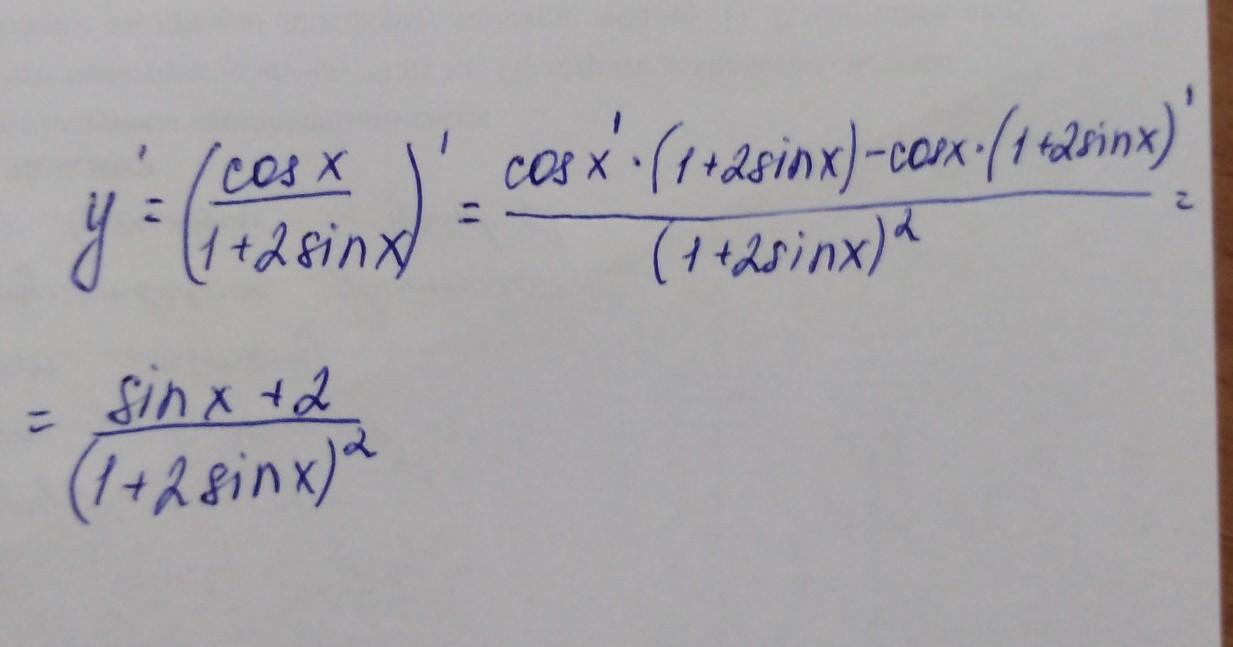 y' = (cos x / 1+2sinx)' = cos x' · (1+2sinx) - cosx · (1+2sinx)' / (1+2sinx)² =
= sin x + 2 / (1+2sinx)²